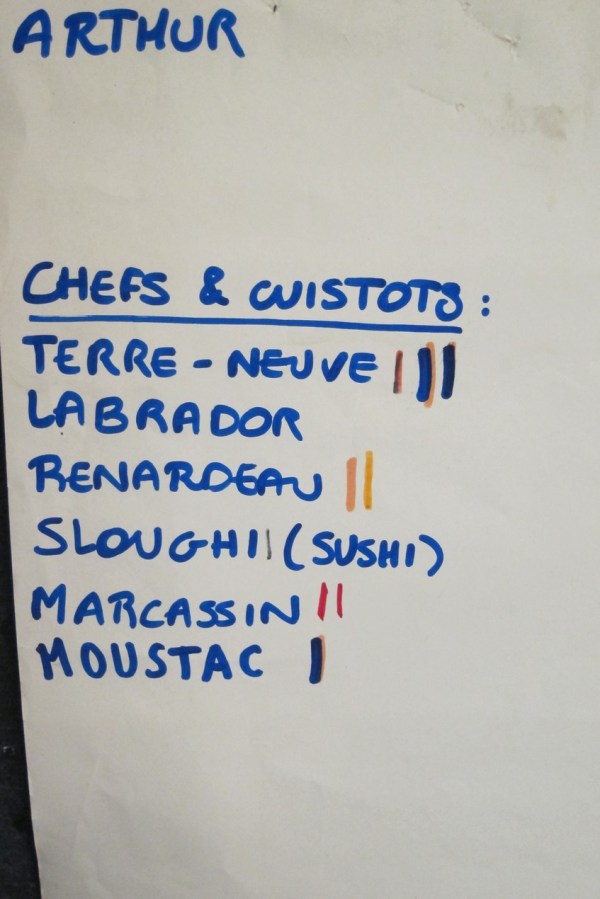 ARTHUR
CHEFS & CUISTOTS :
TERRE - NEUVE |||
LABRADOR
RENARDEAU ||
SLOUGHI | (SUSHI)
MARCASSIN ||
MOUSTAC |